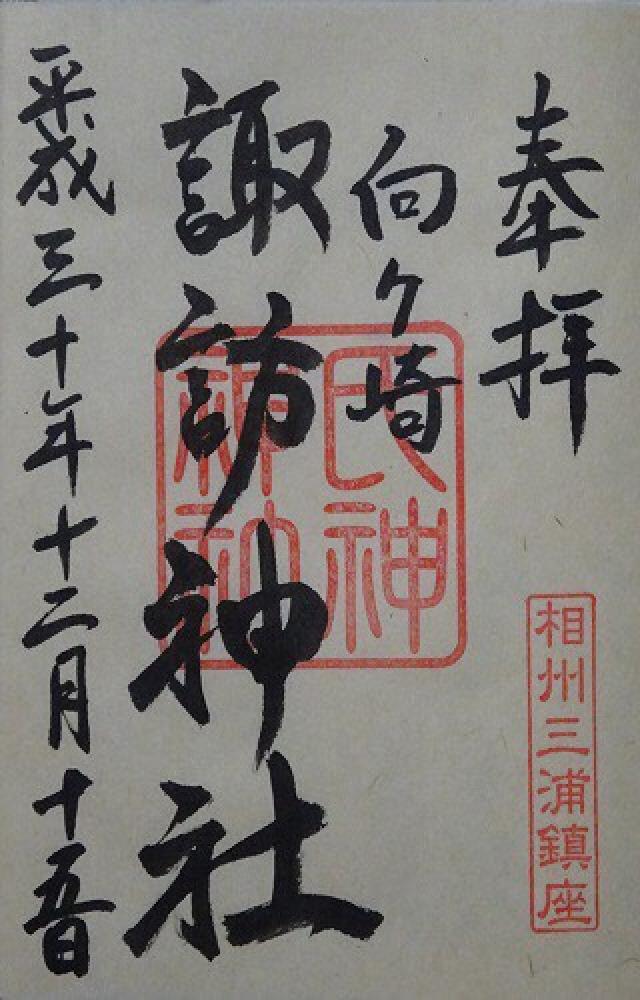 奉拝
相州三浦鎮座
向ケ崎
諏訪神社
氏神
神社
平成三十年十二月十五日